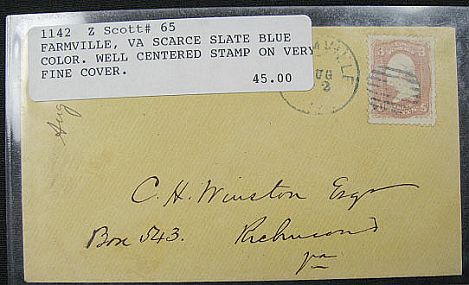 1142 Z Scott# 65
FARMVILLE, VA SCARCE SLATE BLUE
COLOR. WELL CENTERED STAMP ON VERY
FINE COVER.
45.00
VILLE
UG
2
3 3
Aug
C. H. Winston Esqr
Box 543.
Richmond
Va